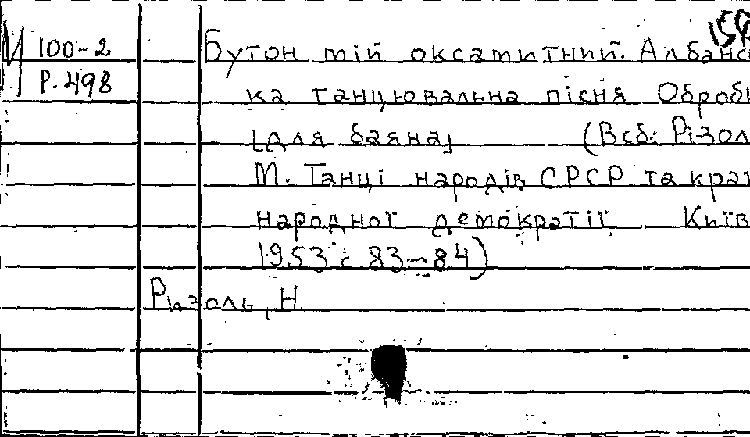 И 100-2
Р-498
Бутон мій оксамитний. Албансь
ка танцювальна пісня Обробк
[для баяна] (В сб: Різол
М. Танці народів СРСР та кра
народної демократії Київ
1953 с 83-84)
Ризоль, Н